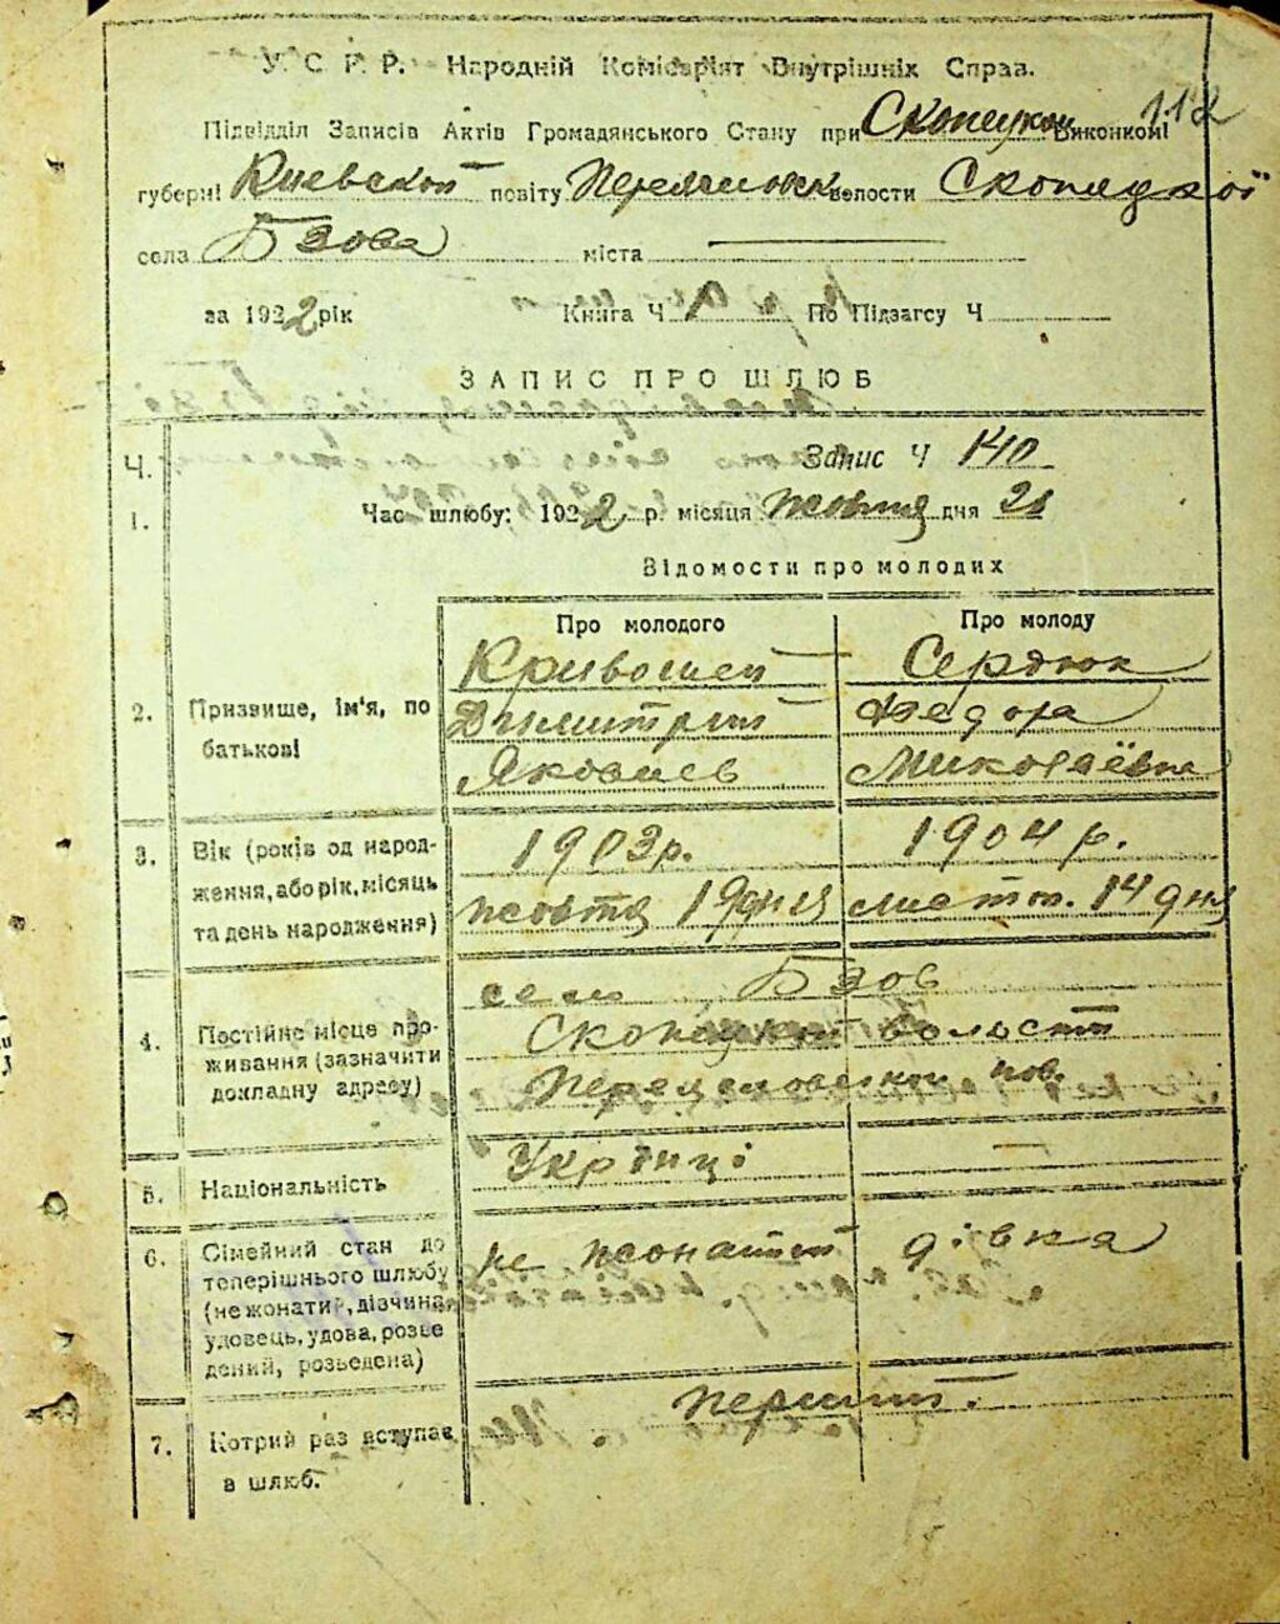 У. С. Р. Р. Народній Комісаріят Внутрішніх Справ.
112
Підвідділ Записів Актів Громадянського Стану при Скопецком Виконкомі
губерні Киевской повіту Переяславск волости Скопецкої
села Бзова міста
за 1922 рік Книга Ч По Підзагсу Ч
ЗАПИС ПРО ШЛЮБ
Ч. Запис Ч 140
1. Час шлюбу: 1922 р. місяця Жовтня дня 28
Відомости про молодих
Про молодого Про молоду
Кривошей Сердюк
2. Призвище, ім'я, по батькові
Димитрий Федора
Яковлев Миколаёвна
3. Вік (років од народ-
ження, або рік, місяць
та день народження)
1903 р. 1904 р.
жовтя 19 дня листоп. 14 дня
село Бзов
4. Постійне місце про-
живання (зазначити
докладну адресу)
Скопецкой вольости
Переяславской пов.
5. Національність Українці —
6. Сімейний стан до
теперішнього шлюбу
(не жонатий, дівчина,
удовець, удова, розве
дений, розведена)
не жонатий дівка
7. Котрий раз вступає
в шлюб.
перший.